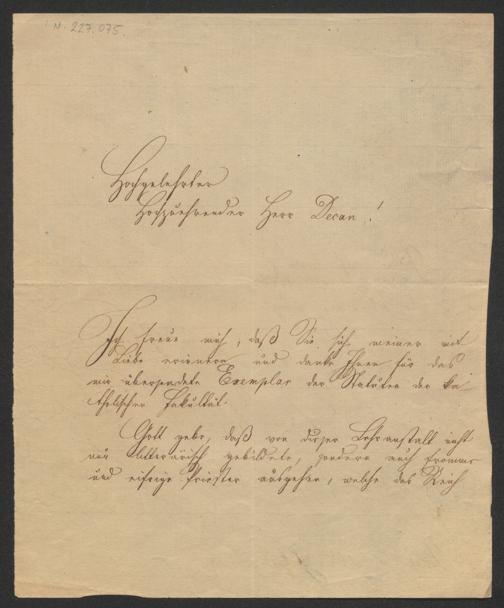 N. 227.075.
Hochgelehrter
Hochzuehrender Herr Decan!
Ich freue mich, daß Sie sich meiner mit
Liebe erinnern und danke Ihnen für das
mir übersendete Exemplar der Statuten der ka
tholischen Fakultät.
Gott gebe, daß von dieser Lehranstalt nicht
nur litterärisch gebildete, sondern auch fromme
und eifrige Priester ausgehen, welche das Reich